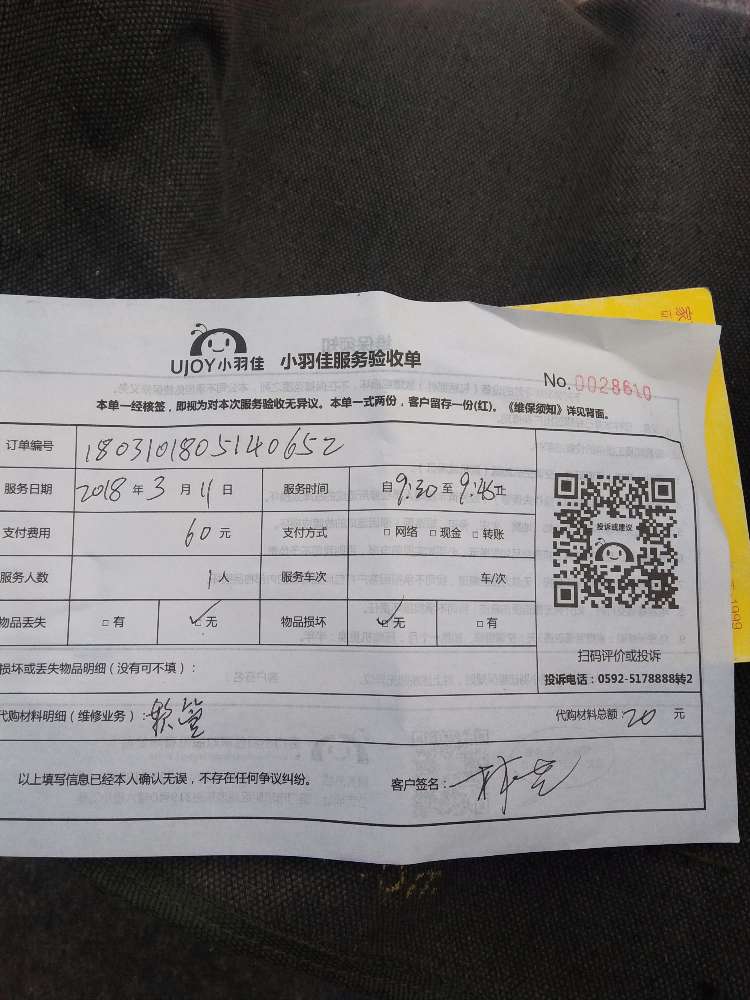 UJOY小羽佳 小羽佳服务验收单
No. 0028610
本单一经核签，即视为对本次服务验收无异议。本单一式两份，客户留存一份(红)。《维保须知》详见背面。
订单编号 1803101805140652
服务日期 2018 年 3 月 11 日 服务时间 自 9:30 至 9:45 止
支付费用 60 元 支付方式 □ 网络 □ 现金 □ 转账
服务人数 1 人 服务车次 车/次
物品丢失 □ 有 ☑ 无 物品损坏 ☑ 无 □ 有
投诉或建议
扫码评价或投诉
投诉电话：0592-5178888转2
损坏或丢失物品明细（没有可不填）：
代购材料明细（维修业务）：软管 代购材料总额：20 元
以上填写信息已经本人确认无误，不存在任何争议纠纷。 客户签名：